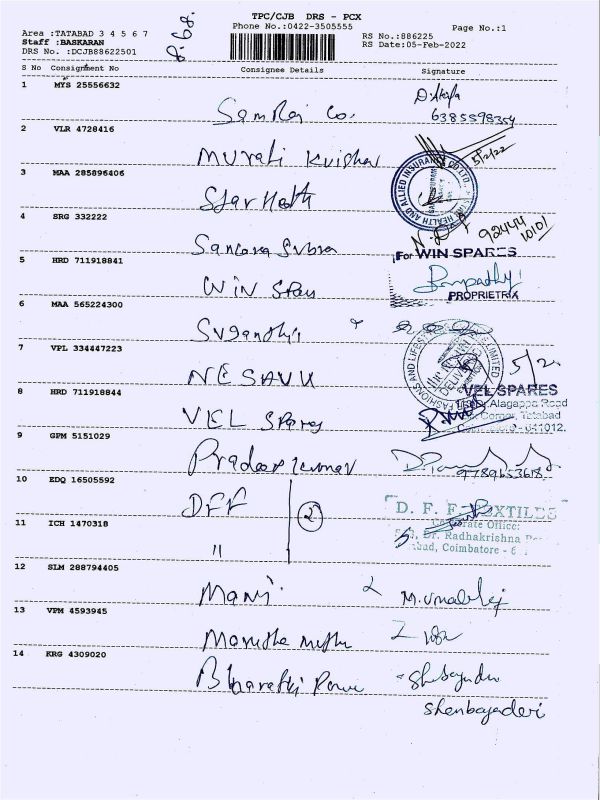 TPC/CJB DRS - PCX
Phone No.:0422-3505555
Page No.:1
Area :TATABAD 3 4 5 6 7
Staff :BASKARAN
DRS No. :DCJB88622501
RS No.:886225
RS Date:05-Feb-2022
S No Consignment No Consignee Details Signature
1 MYS 25556632
6385598354
2 VLR 4728416
Murali Krishna
5/2/22
3 MAA 285896406
Star Health
HEALTH AND ALLIED INSURANCE CO LTD.
4 SRG 332222
Sankara Subra
92444
10101
5 HRD 711918841
Win Spares
For WIN SPARES
PROPRIETRIX
6 MAA 565224300
Sugandhi
7 VPL 334447223
NESAVU
FASHIONS AND LIFESTYLE LIMITED
8 HRD 711918844
VEL Spares
VEL SPARES
Alagappa Road
Corner, Tatabad
641012.
9 GPM 5151029
Pradeep Kumar
9789653618
10 EDQ 16505592
DFF
2
D. F. F. TEXTILES
Corporate Office:
Dr. Radhakrishna
Coimbatore - 6
11 ICH 1470318
"
12 SLM 288794405
Mani
13 VPM 4593945
14 KRG 4309020
Shenbagadevi